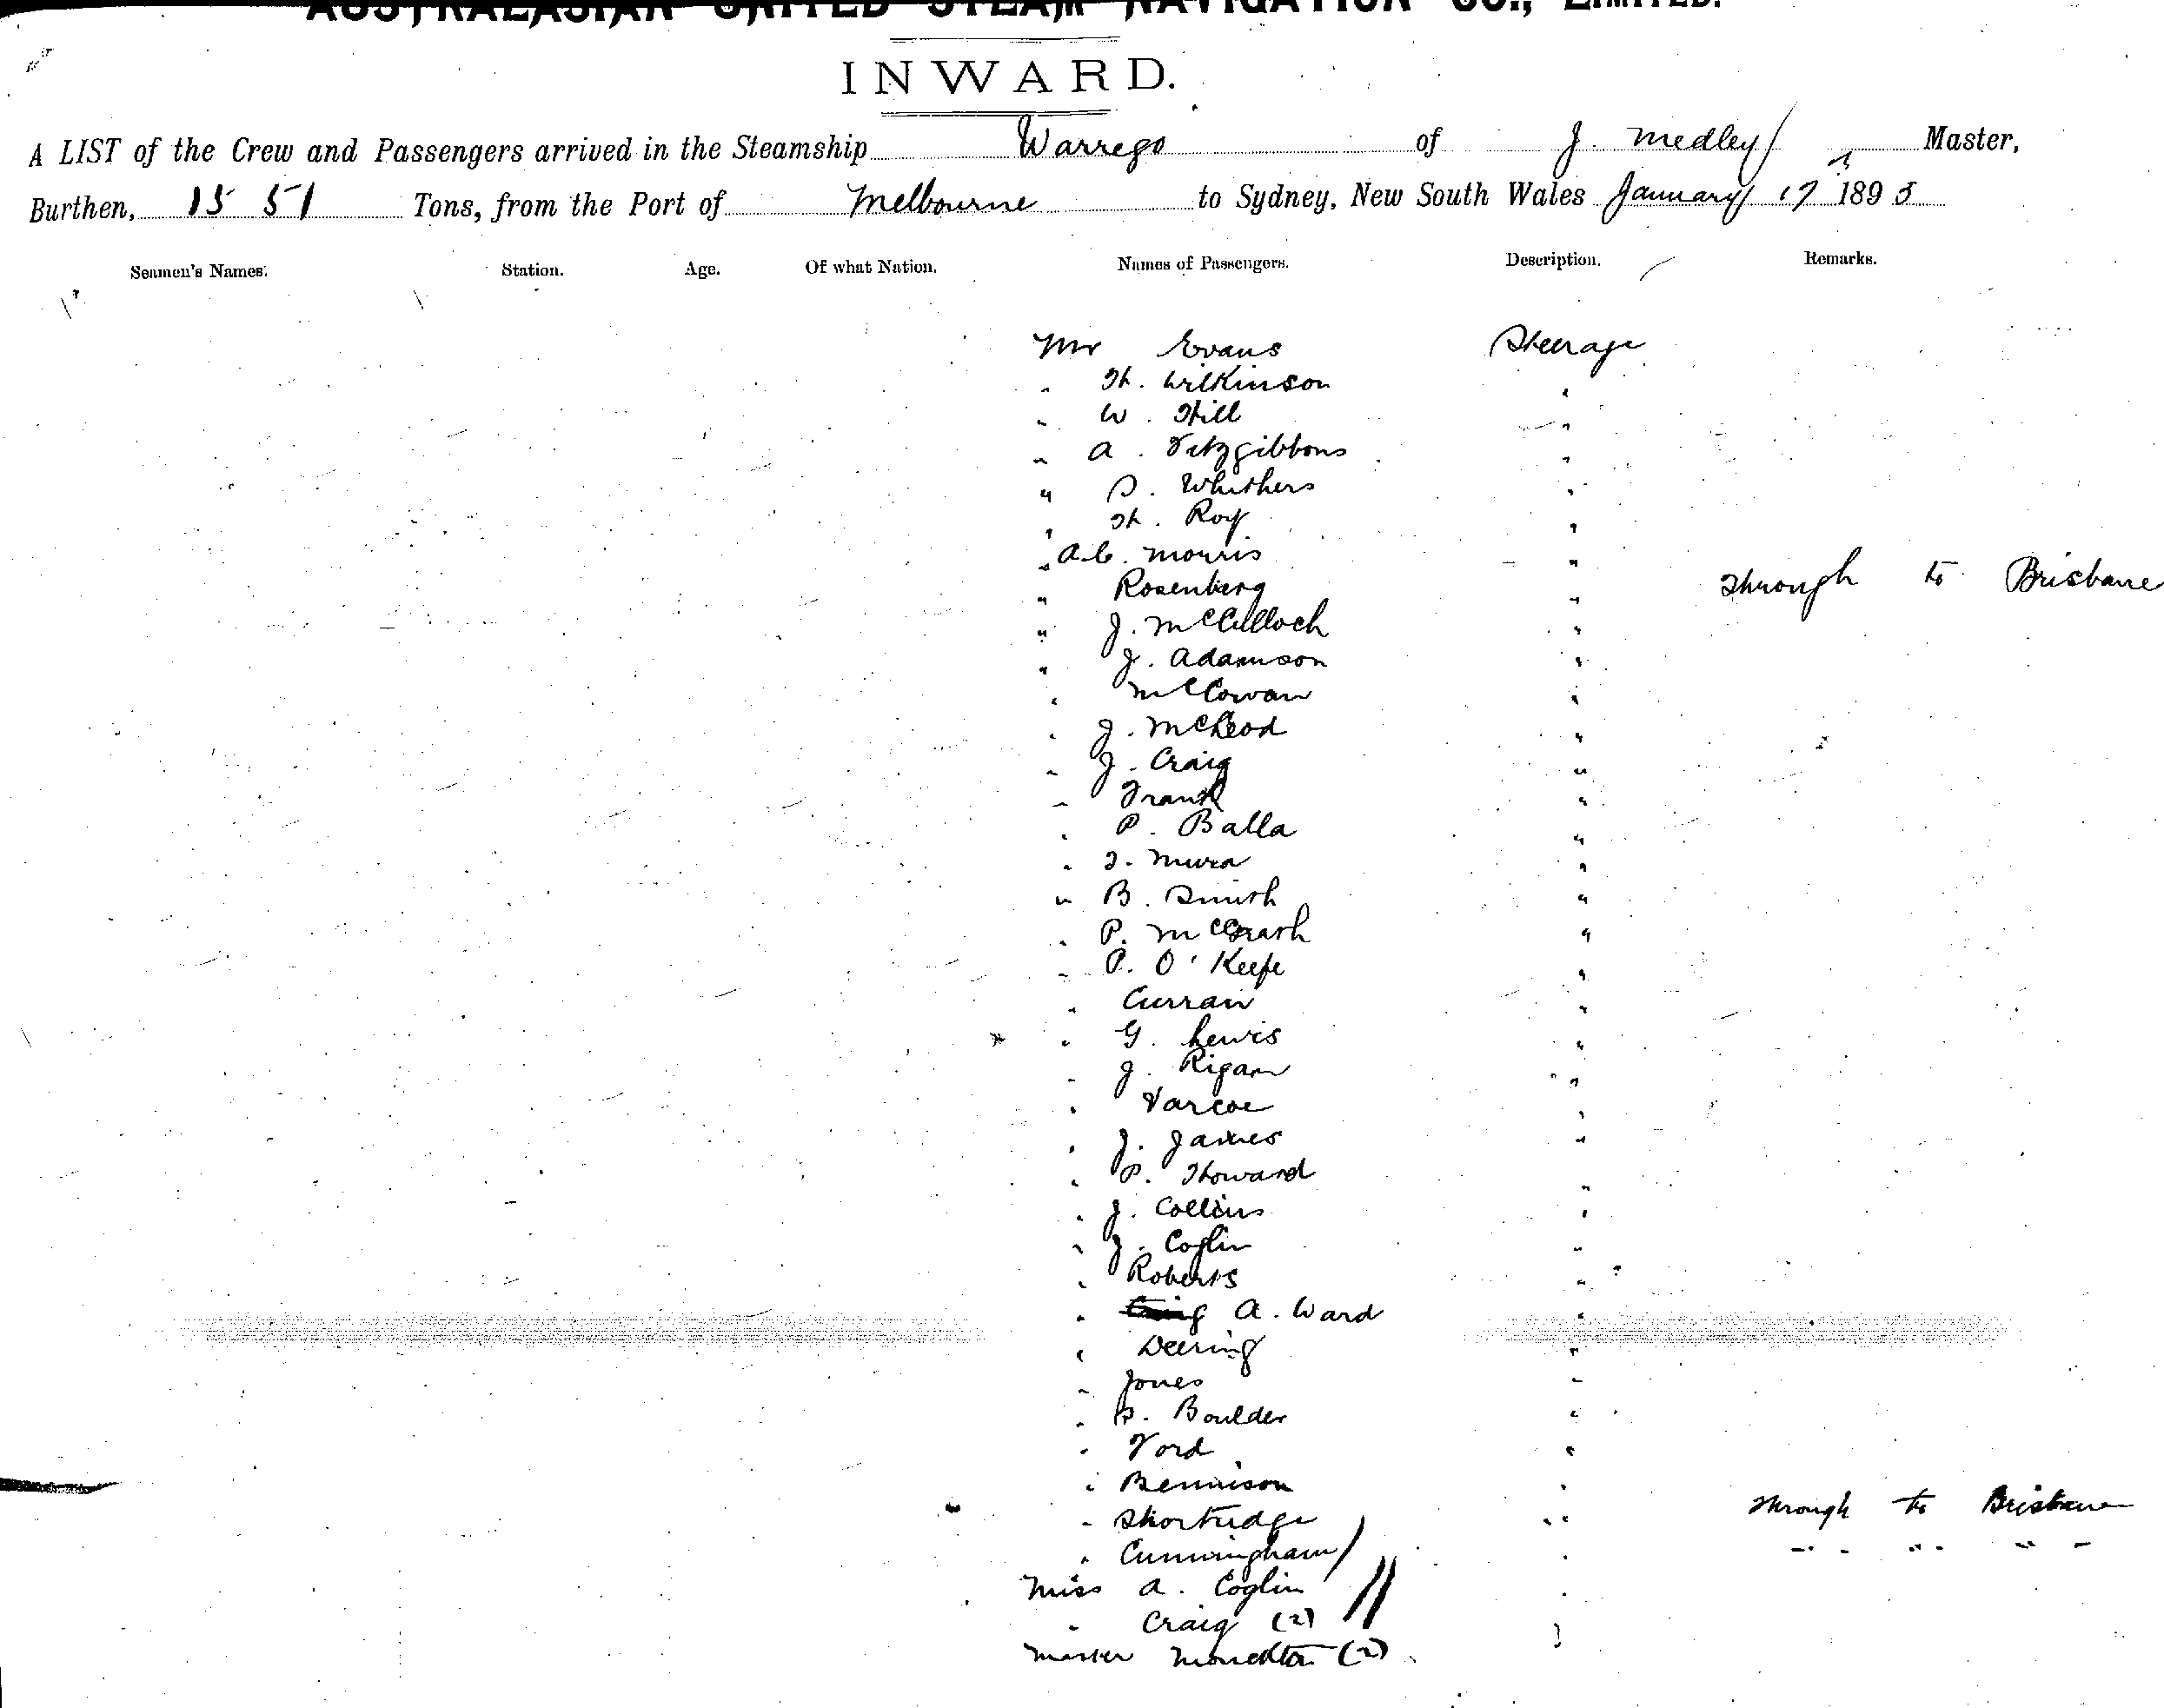 AUSTRALASIAN UNITED STEAM NAVIGATION CO., LIMITED.
INWARD.
A LIST of the Crew and Passengers arrived in the Steamship Warrego of J. Medley Master,
Burthen, 1551 Tons, from the Port of Melbourne to Sydney, New South Wales January 17 1893
Seamen's Names. Station. Age. Of what Nation. Names of Passengers. Description. Remarks.
Mr Evans Steerage
" H. Wilkinson "
" W. Hill "
" A. Fitzgibbons "
" S. Whithers "
" H. Roy "
" A.C. Morris "
" Rosenberg " Through to Brisbane
" J. McCulloch "
" J. Adamson "
" McCowan "
" J. McLeod "
" J. Craig "
" Frank "
" P. Balla "
" J. Mura "
" B. Smith "
" P. McGrath "
" P. O'Keefe "
" Curran "
" G. Lewis "
" J. Rigan "
" Varcoe "
" J. James "
" P. Howard "
" J. Collins "
" J. Coglin "
" Roberts "
" A. Ward "
" Deering "
" Jones "
" S. Boulder "
" Ford "
" Bennison "
" Shortridge " Through to Brisbane
" Cunningham " " " "
Miss A. Coglin "
" Craig (2) "
Master Monckton (2)